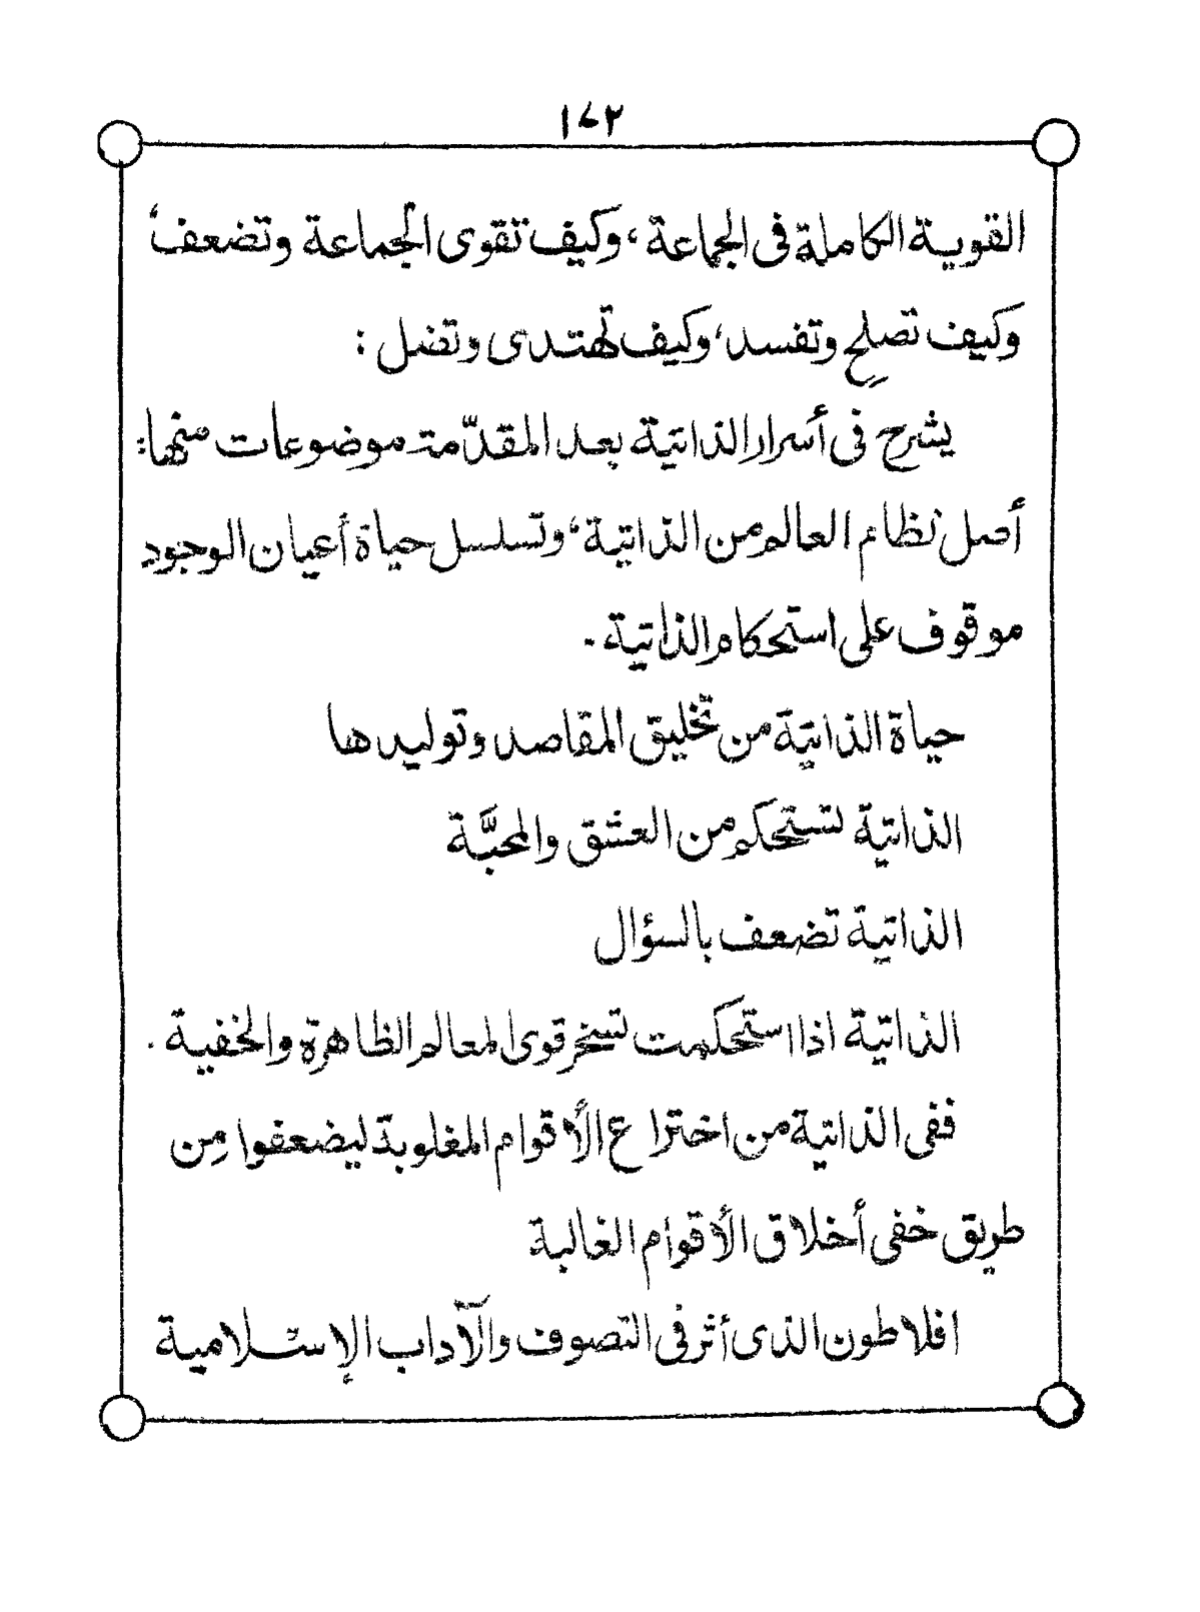 ١٧٢
القوية الكاملة فى الجماعة، وكيف تقوى الجماعة وتضعف،
وكيف تصلح وتفسد، وكيف تهتدى وتضل :
يشرح فى أسرار الذاتية بعد المقدّمة موضوعات منها:
أصل نظام العالم من الذاتية، وتسلسل حياة أعيان الوجود
موقوف على استحكام الذاتية.
حياة الذاتية من تخليق المقاصد وتوليدها
الذاتية تستحكم من العشق والمحبَّة
الذاتية تضعف بالسؤال
الذاتية اذا استحكمت تسخر قوى المعالم الظاهرة والخفية .
ففى الذاتية من اختراع الأقوام المغلوبة ليضعفوا مِن
طريق خفى أخلاق الأقوام الغالبة
افلاطون الذى أثر فى التصوف والآداب الإسلامية